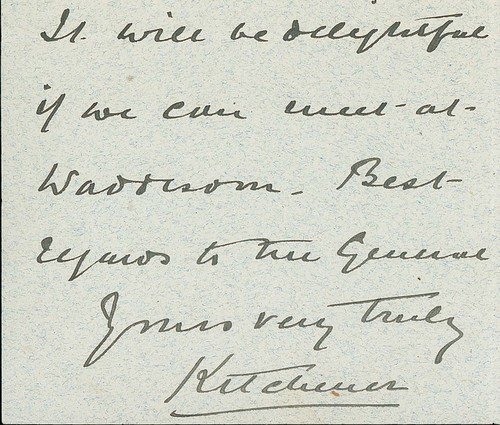 It will be delightful
if we can meet at
Waddesdon. Best
regards to the General
Yours very truly
Kitchener